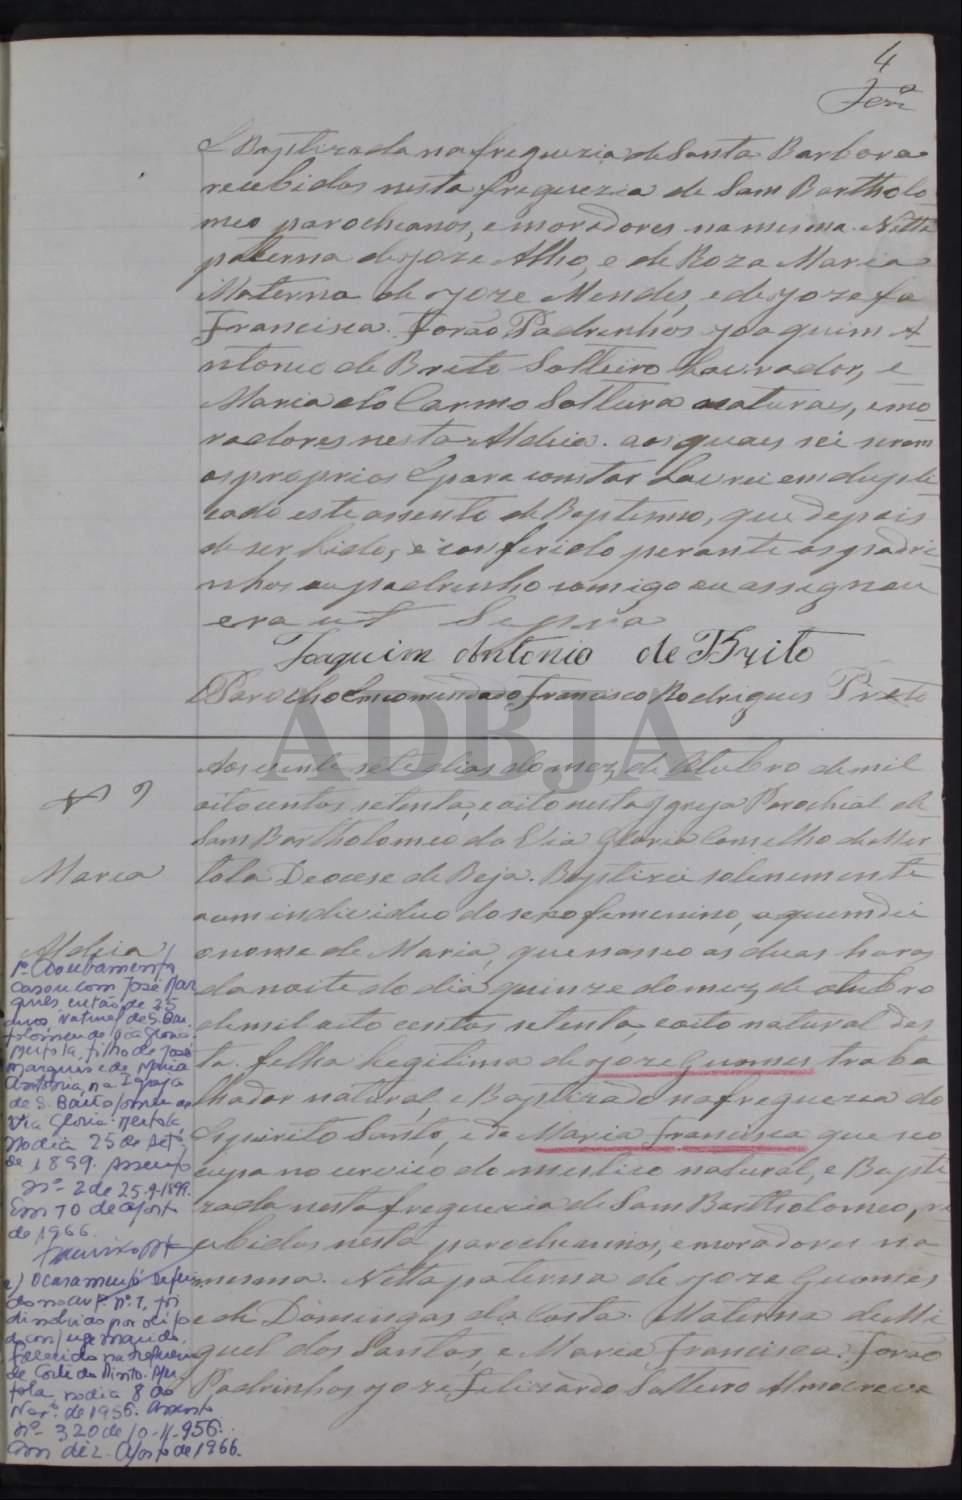 4
Ferr.ª
E Baptizada na freguezia de Santa Barbora
recebidos nesta freguezia de Sam Bartholo
meo parochianos, e moradores na mesma. Netta
paterna de Joze Alho, e de Roza Maria
Materna de Joze Mendes, e de Jozefa
Francisca. Forão Padrinhos Joaquim A
ntonio de Brito Solteiro Lavrador, e
Maria do Carmo Solteira naturaes, e mo
radores nesta Aldeia. aos quaes sei serem
os proprios E para constar Lavrei em dupli
cado este assento de Baptismo, que depois
de ser Lido, e conferido perante os padri
nhos o padrinho comigo o assignou
era ut Supra
Joaquim Antonio de Brito
Parocho Encommendado, Francisco Rodrigues Preto
ADBJA
Nº 9
Maria
Aldeia
Aos vente sete dias do mez de Otubro de mil
oito centos setenta, e oito nesta Igreja Parochial de
Sam Bartholomeo da Via Gloria Conselho de Mer
tola Deocese de Beja. Baptizei solenemente
a um individuo do sexo femenino, a quem dei
o nome de Maria, que nasceo as duas horas
da noite do dia quinze do mez de otubro
de mil oito centos setenta, e oito natural des
ta. felha legitima de Joze Guomes traba
lhador natural, e Baptizado na freguezia do
Espirito Santo, e de Maria Francisca que se o
cupa no cervico domestico natural, e Bapti
zada nesta freguezia de Sam Bartholomeo, re
cebidos nesta parochianos, e moradores na
mesma. Netta paterna de Joze Guomes,
e de Domingas da Costa. Materna de Mi
guel dos Santos, e Maria Francisca. Forão
Padrinhos Joze Felizardo Solteiro Almocreve
1º Averbamento
Casou com José Mar
ques, então de 25
anos, natural de S. Bar
tolomeu da Via Gloria
Mertola, filho de José
Marques e de Maria
Antonia, na Igreja
de S. Bartolomeu da
Via Gloria. Mertola,
no dia 25 de Setº
de 1899. Assento
nº 2 de 25-9-1899.
Em 10 de Agosto
de 1966.
a) O casamento referi
do no avº nº 1, foi
dissolvido por obito
do conjuge marido.
falecido na freguesia
de Corte do Pinto. Mer
tola no dia 8 de
Novº de 1956. Assento
nº 320 de 10-11-956.
Em dez Agosto de 1966.